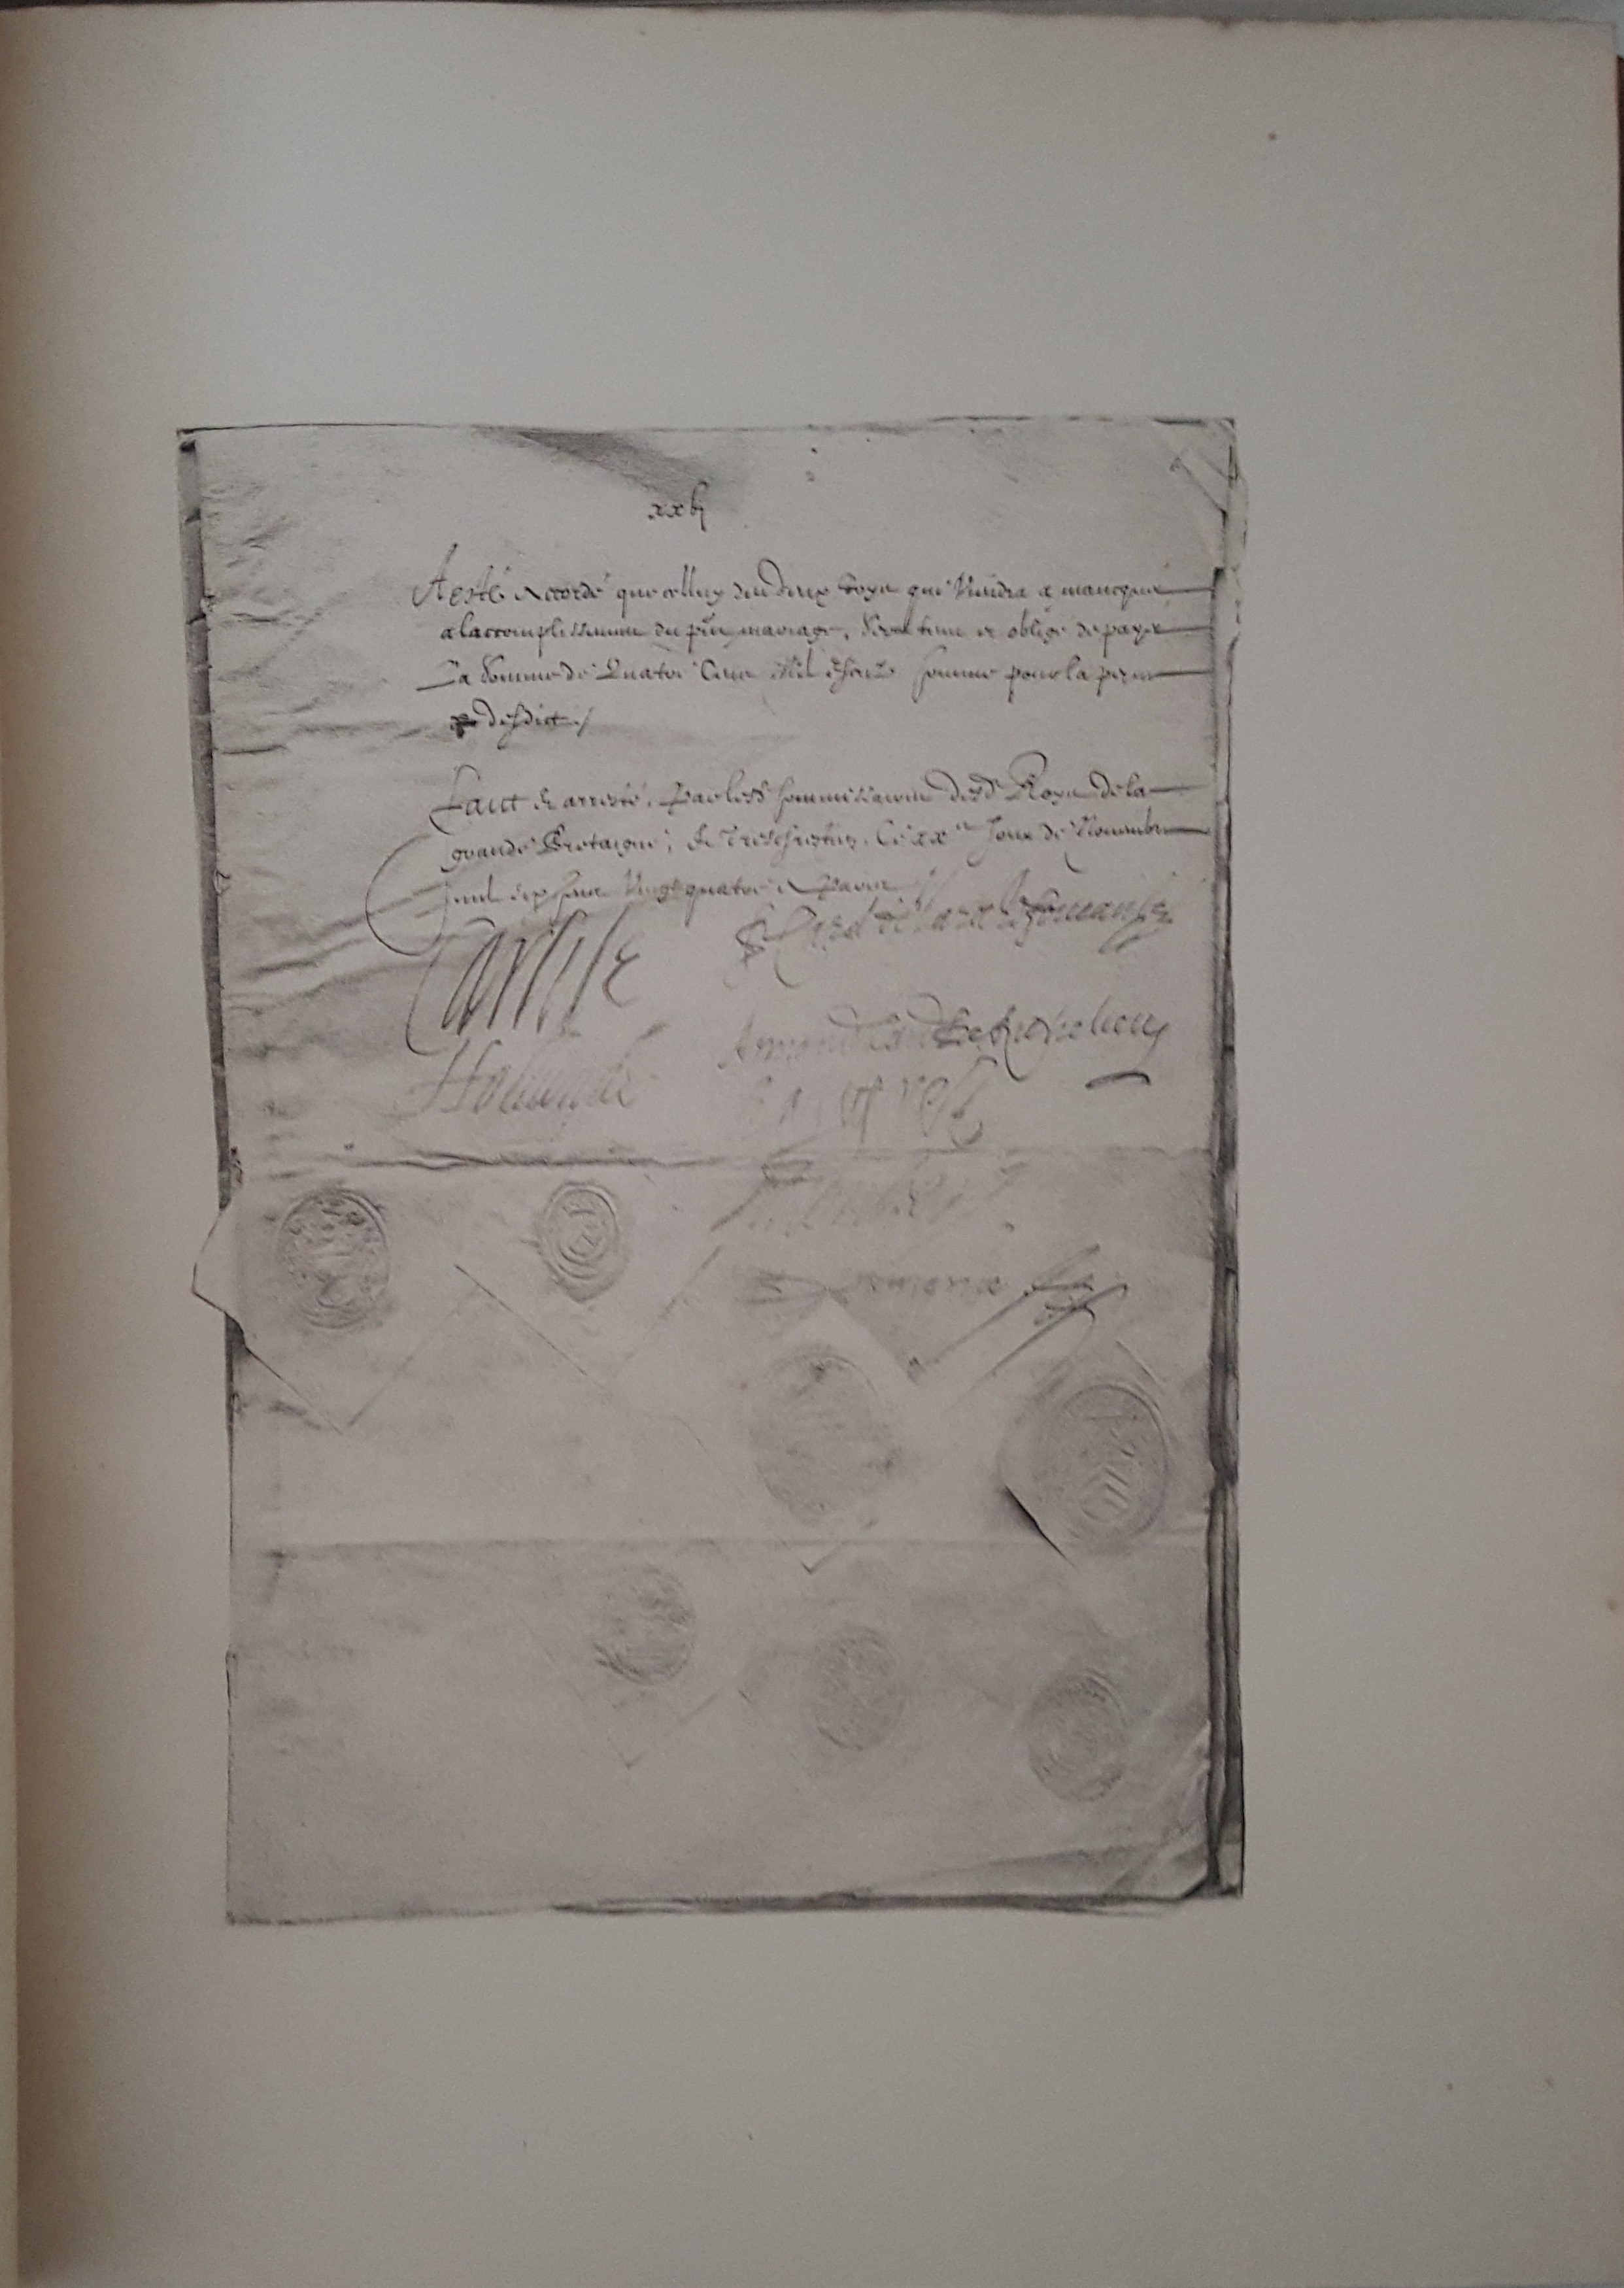 xxvj
A esté Accordé que celluy des deux Roys qui viendra a manquer
a laccomplissement du pñt mariage, sera tenu et obligé de payer
La somme de Quatre Cens Mil escuz comme pour la peine
de desdict /
Faict & arresté, par lesd Commissaires desd Roys de la
grande Bretaigne, & Treschrestien, Ce xx.e Jour de Novembre
mil six cens vingt quatre A Paris
Carlile
Card de la Rochefoucauld
Holland
Armand Card de Richelieu